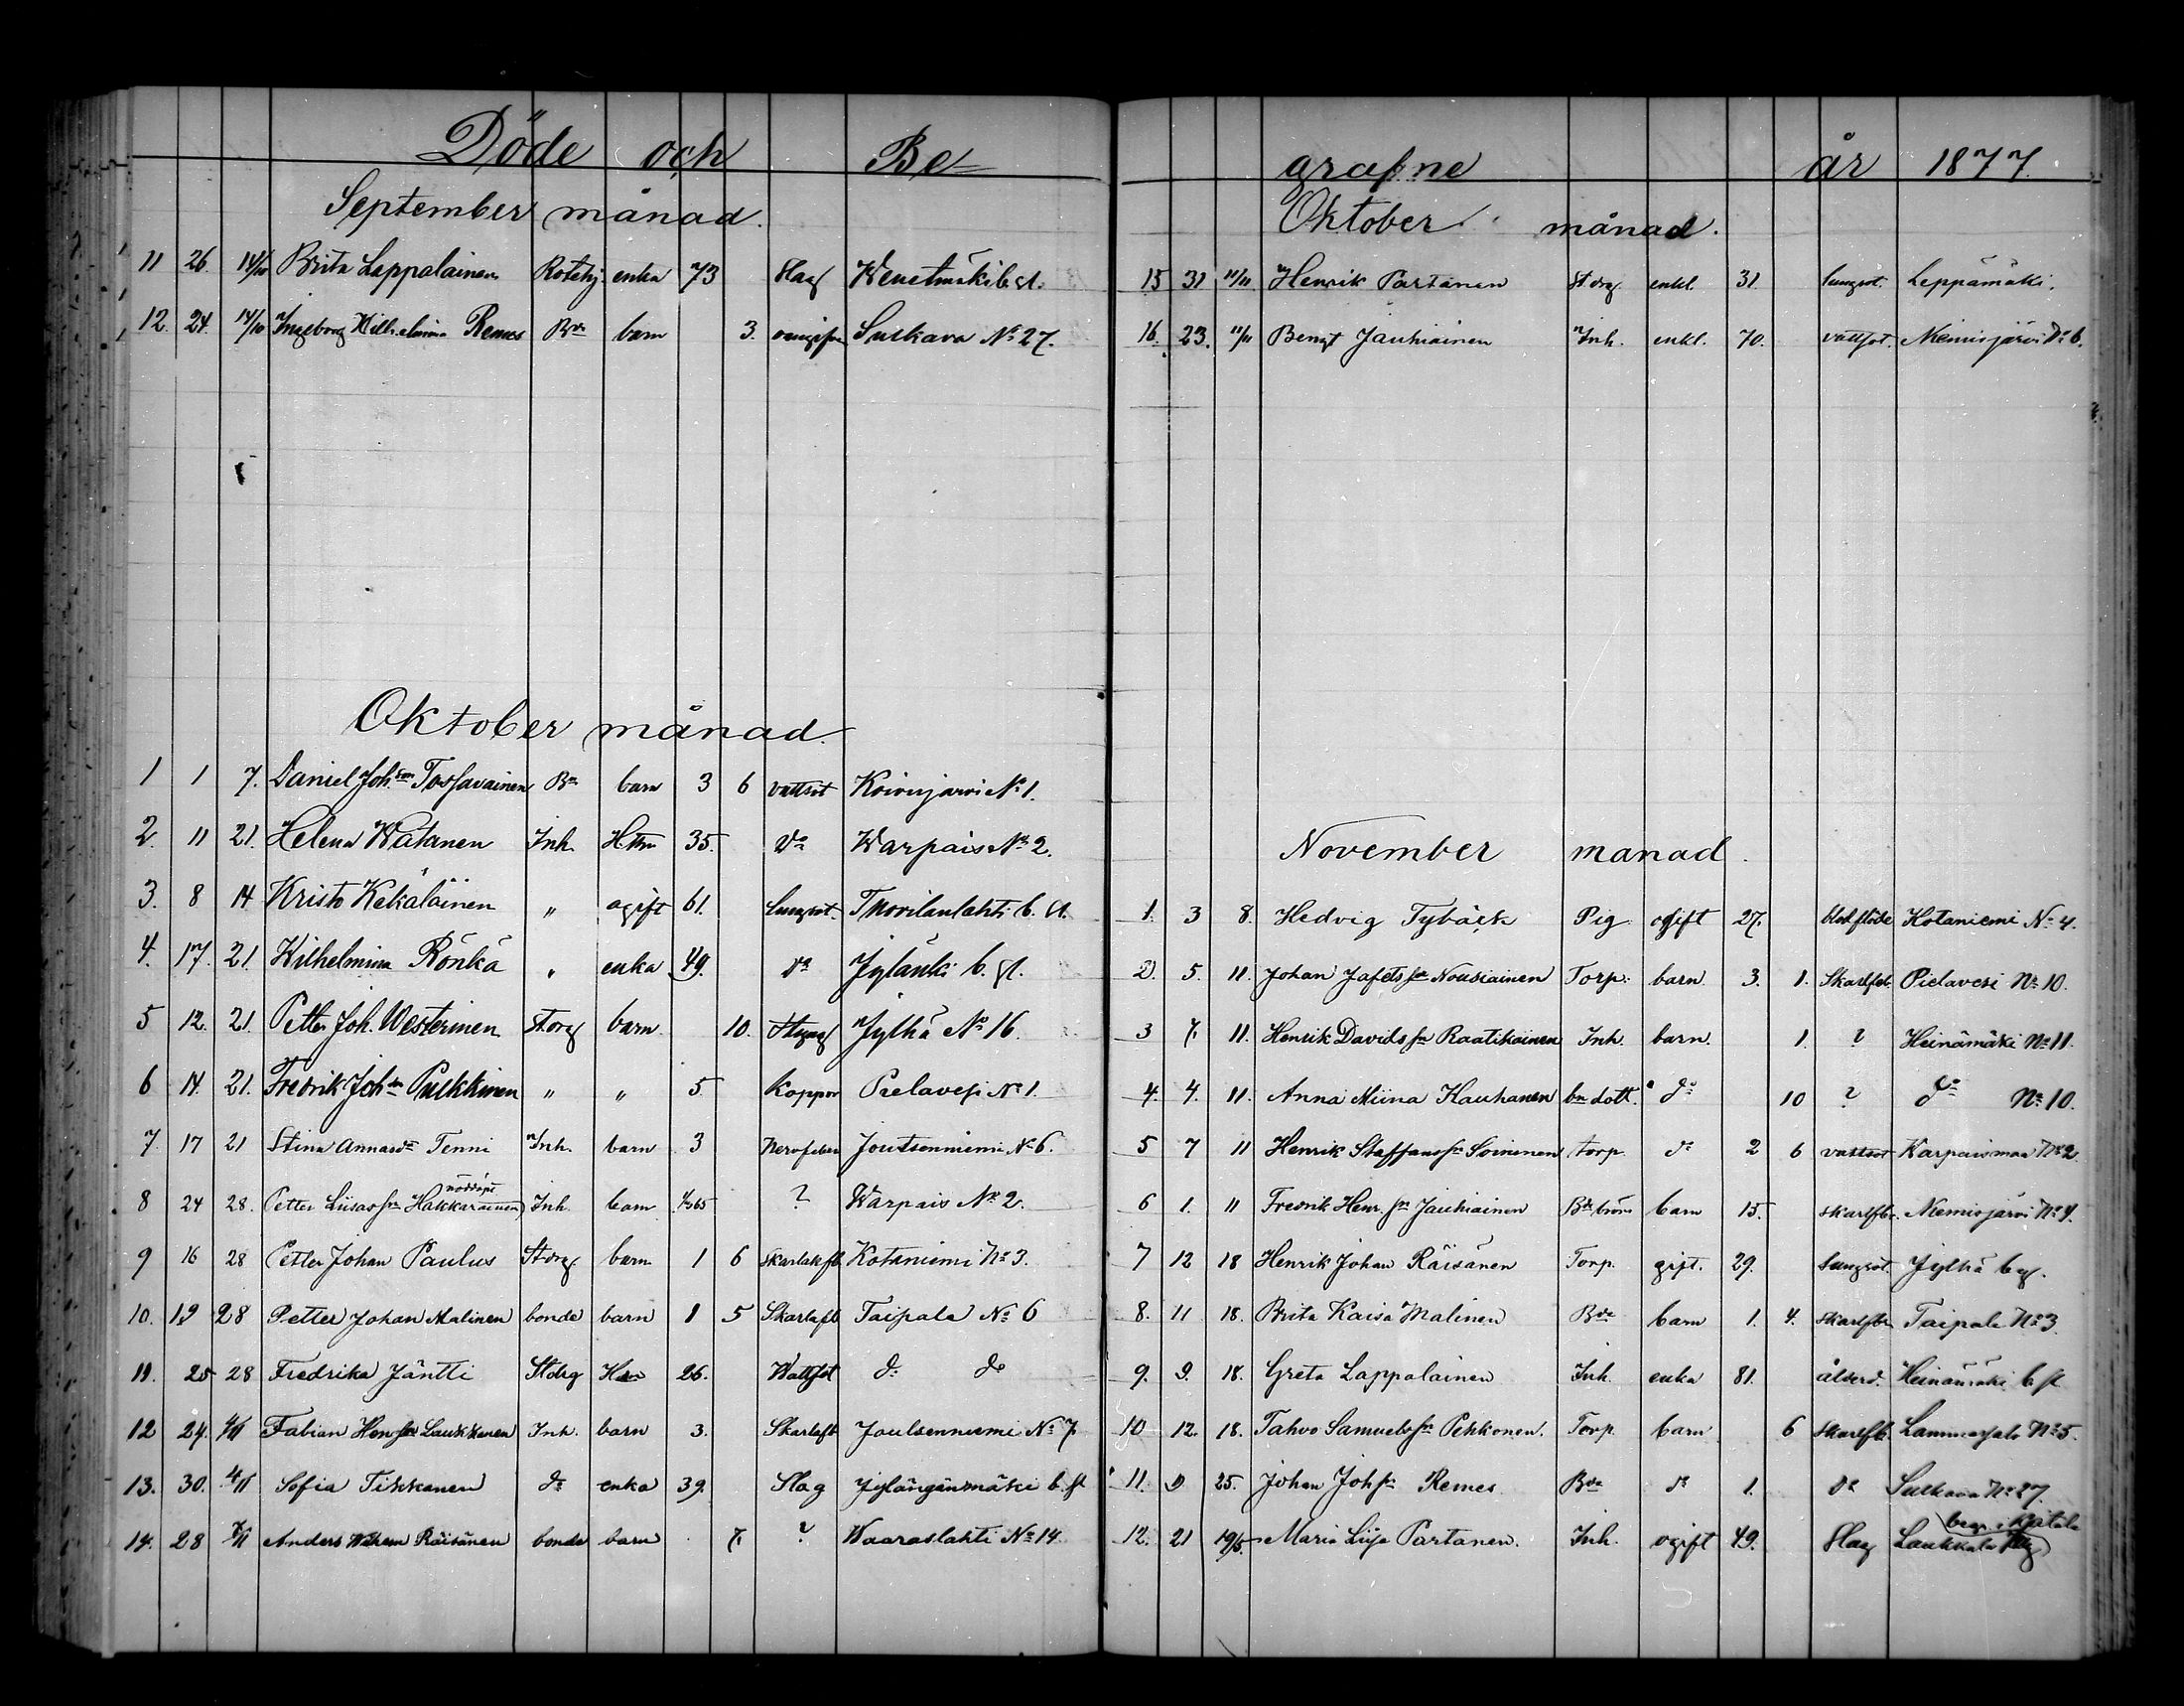 Döde och Be-
September månad.
11 26. 14/10 Brita Lappalainen Rotehj. enka 73 Slag Wenetmäki b. st.
12. 24. 14/10 Ingeborg Wilhelmina Remes Bde barn 3. Sulkava No 27.
Oktober månad.
1 1 7. Daniel Joh. son Tossavainen Bde barn 3 6 vattsot Koivujärvi No 1.
2. 11 21. Helena Watanen Inh. Hstru 35. do Warpais No 2.
3. 8 14 Kristo Kekäläinen " ogift 61. lungsot. Tuovilanlahti b. st.
4. 17. 21. Wilhelmina Rönkä " enka 49. do Jylänki b. st.
5 12. 21. Petter Joh. Westerinen St.drg barn 10. Jylhä No 16.
6 14. 21. Fredrik Joh. sn Pulkkinen " " 5. koppor Pielavesi No 1.
7. 17 21 Stina Annasdr Tenni Inh. barn 3 Nervfeber Joutsenniemi No 6.
8 24 28. Petter Liisas sn Hakkarainen nöddöpt Inh. barn ? Warpais No 2.
9 16 28 Petter Johan Paulus St.drg. barn 1 6 Skarlakfb Kotaniemi No 3.
10. 19 28 Petter Johan Malinen bonde barn 1 5 Skarlafb Taipale No 6
11. 25 28 Fredrika Jäntti St.drg 26. Wattsot do do
12 24. 4/11 Fabian Hen sn Laukkanen Inh. barn 3. Skarlafb Joutsenniemi No 7
13. 30. 4/11 Sofia Tikkanen do enka 39. Slag Jylängänmäki b. st
14. 28 4/11 Anders Wilhem Räisänen bonde barn 7. ? Waaraslahti No 14.
grafne år 1877.
Oktober månad.
15 31 11/11 Henrik Partanen St drg enkl. 31. lungsot. Leppämäki.
16. 23. 11/11 Bengt Jauhiainen Inh. enkl. 70. vattsot. Niemisjärvi No 6.
November månad.
1. 3 8. Hedvig Tybäck Pig. ogift 27. blodflöde Kotaniemi No 4.
2. 5. 11. Johan Jafets sn Nousiainen Torp. barn 3. 1. Skarlfeb. Pielavesi No 10.
3 7. 11. Henrik Davids sn Raatikainen Inh. barn. 1. ? Heinämäki No 11.
4. 4. 11. Anna Miina Kauhanen bn dott. do 10 ? do No 10.
5 7 11 Henrik Staffans sn Soininen torp. do 2 6 vattsot Karpaismaa No 2
6 1. 11 Fredrik Henr. sn Jauhiainen Bde bror barn 15. skarlfbr. Niemisjärvi No 4.
7 12 18 Henrik Johan Räisänen Torp. gift. 29. lungsot Jylhä
8. 11 18. Brita Kaisa Malinen Bde barn 1. 4. skarlfbr Taipale No 3.
9. 9. 18. Greta Lappalainen Inh. enka 81. ålderd. Heinämäki b. st
10 12. 18. Tahvo Samuels sn Pehkonen. Torp. barn 6 Skarlfb. Lammassalo No 5.
11. 9 25. Johan Joh sn Remes Bde do 1. do Sulkava No 27.
12. 21 19/5. Maria Liisa Partanen. Inh. ogift 49. Slag Laukkala